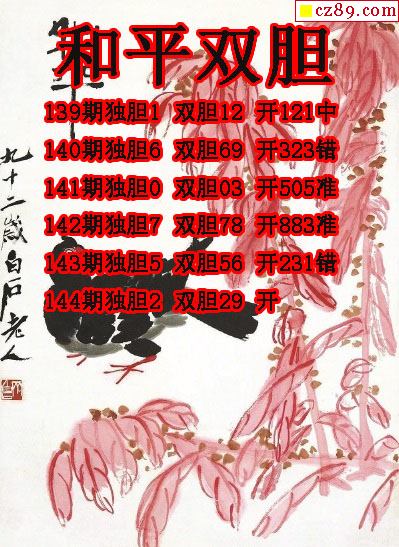 cz89.com
和平双胆
139期独胆1 双胆12 开121中
140期独胆6 双胆69 开323错
141期独胆0 双胆03 开505准
142期独胆7 双胆78 开883准
143期独胆5 双胆56 开231错
144期独胆2 双胆29 开
九十二岁白石老人